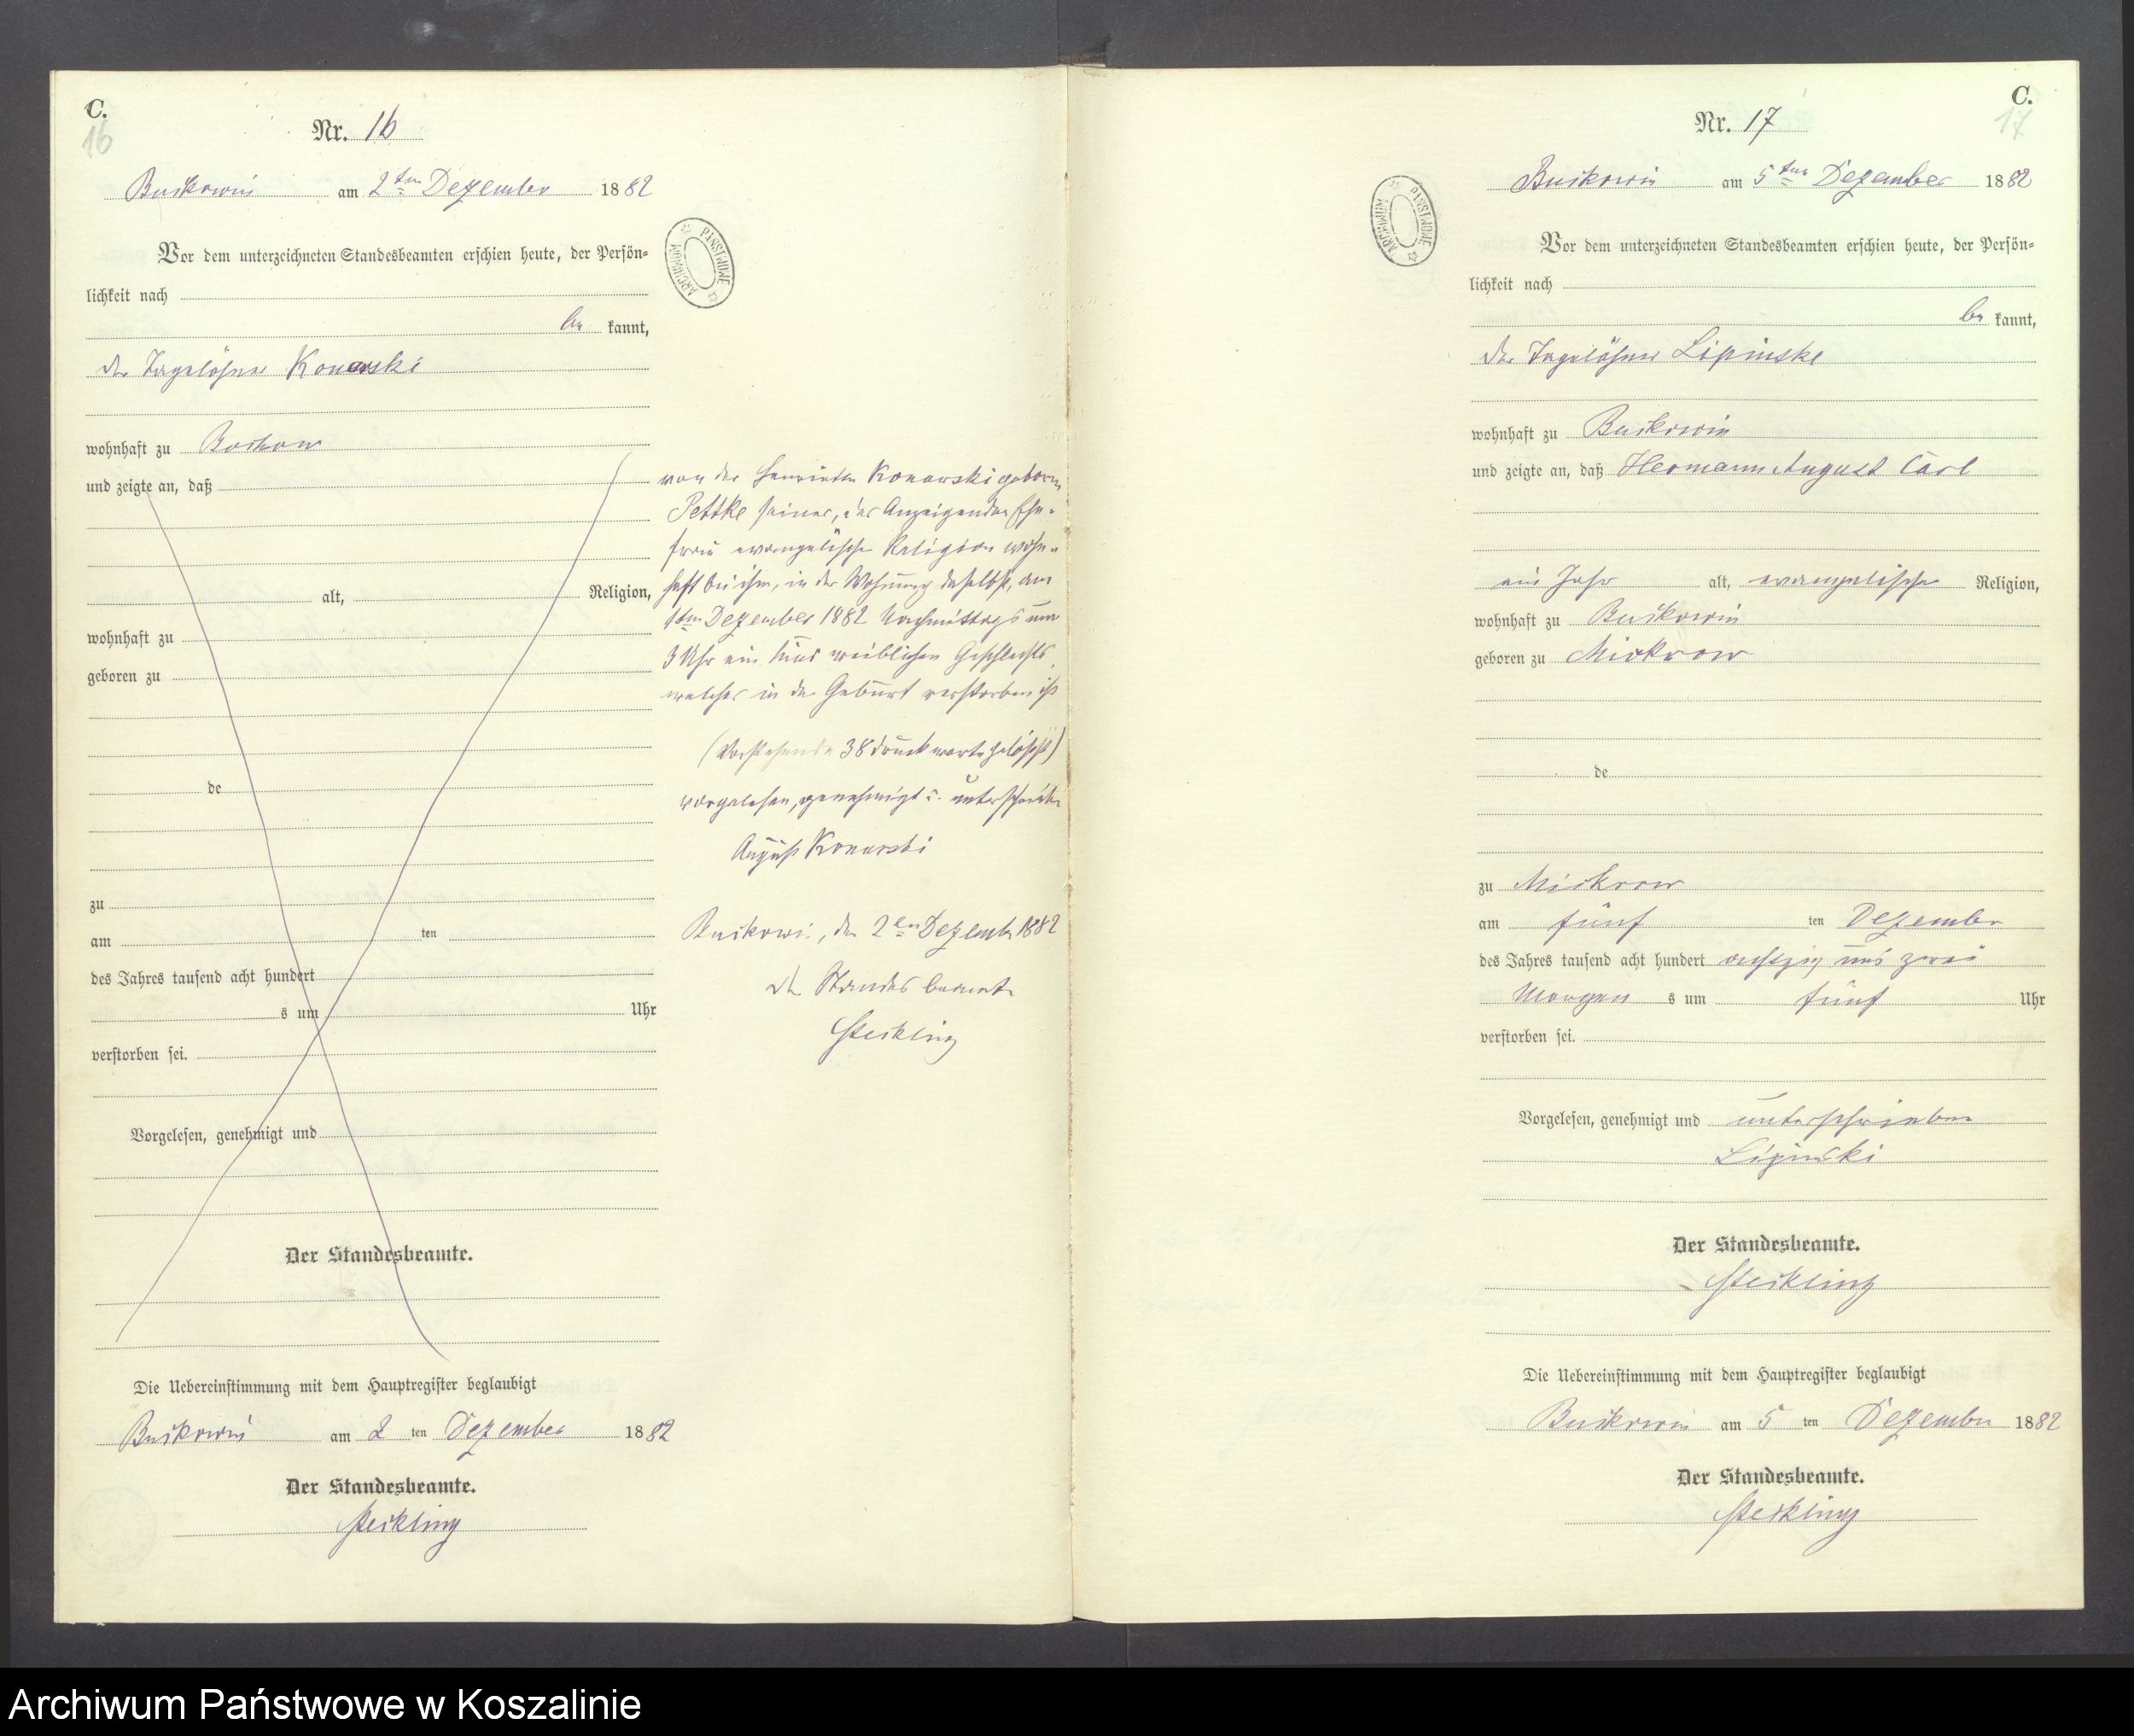 C.
16
Nr. 16
Buckowin am 2ten Dezember 1882
Vor dem unterzeichneten Standesbeamten erschien heute, der Persön-
lichkeit nach
be kannt,
der Tagelöhner Konarski
wohnhaft zu Boschow
und zeigte an, daß
alt, Religion,
wohnhaft zu
geboren zu
de
zu
am ten
des Jahres tausend acht hundert
s um Uhr
verstorben sei.
Vorgelesen, genehmigt und
Der Standesbeamte.
Die Uebereinstimmung mit dem Hauptregister beglaubigt
Buckowin am 2 ten Dezember 1882
Der Standesbeamte.
Steckling
ARCHIWUM PAŃSTWOWE
von der Henriette Konarski geboren
Pettke seiner, des Anzeigenden Ehe-
frau evangelischer Religion wohn-
haft bei ihm, in der Wohnung daselbst, am
1ten Dezember 1882 Nachmittags um
3 Uhr ein Kind weiblichen Geschlechts
welches in der Geburt verstorben ist
(Vorstehende 38 Druckworte gelöscht)
vorgelesen, genehmigt u. unterschrieben
August Konarski
Buckowin, den 2ten Dezember 1882
der Standesbeamte
Steckling
C.
17
Nr. 17
ARCHIWUM PAŃSTWOWE
Buckowin am 5ten Dezember 1882
Vor dem unterzeichneten Standesbeamten erschien heute, der Persön-
lichkeit nach
be kannt,
der Tagelöhner Lipinski
wohnhaft zu Buckowin
und zeigte an, daß Hermann August Carl
ein Jahr alt, evangelischer Religion,
wohnhaft zu Buckowin
geboren zu Mickrow
de
zu Mickrow
am fünf ten Dezember
des Jahres tausend acht hundert achtzig und zwei
Morgen s um fünf Uhr
verstorben sei.
Vorgelesen, genehmigt und unterschrieben
Lipinski
Der Standesbeamte.
Steckling
Die Uebereinstimmung mit dem Hauptregister beglaubigt
Buckowin am 5 ten Dezember 1882
Der Standesbeamte.
Steckling
Archiwum Państwowe w Koszalinie